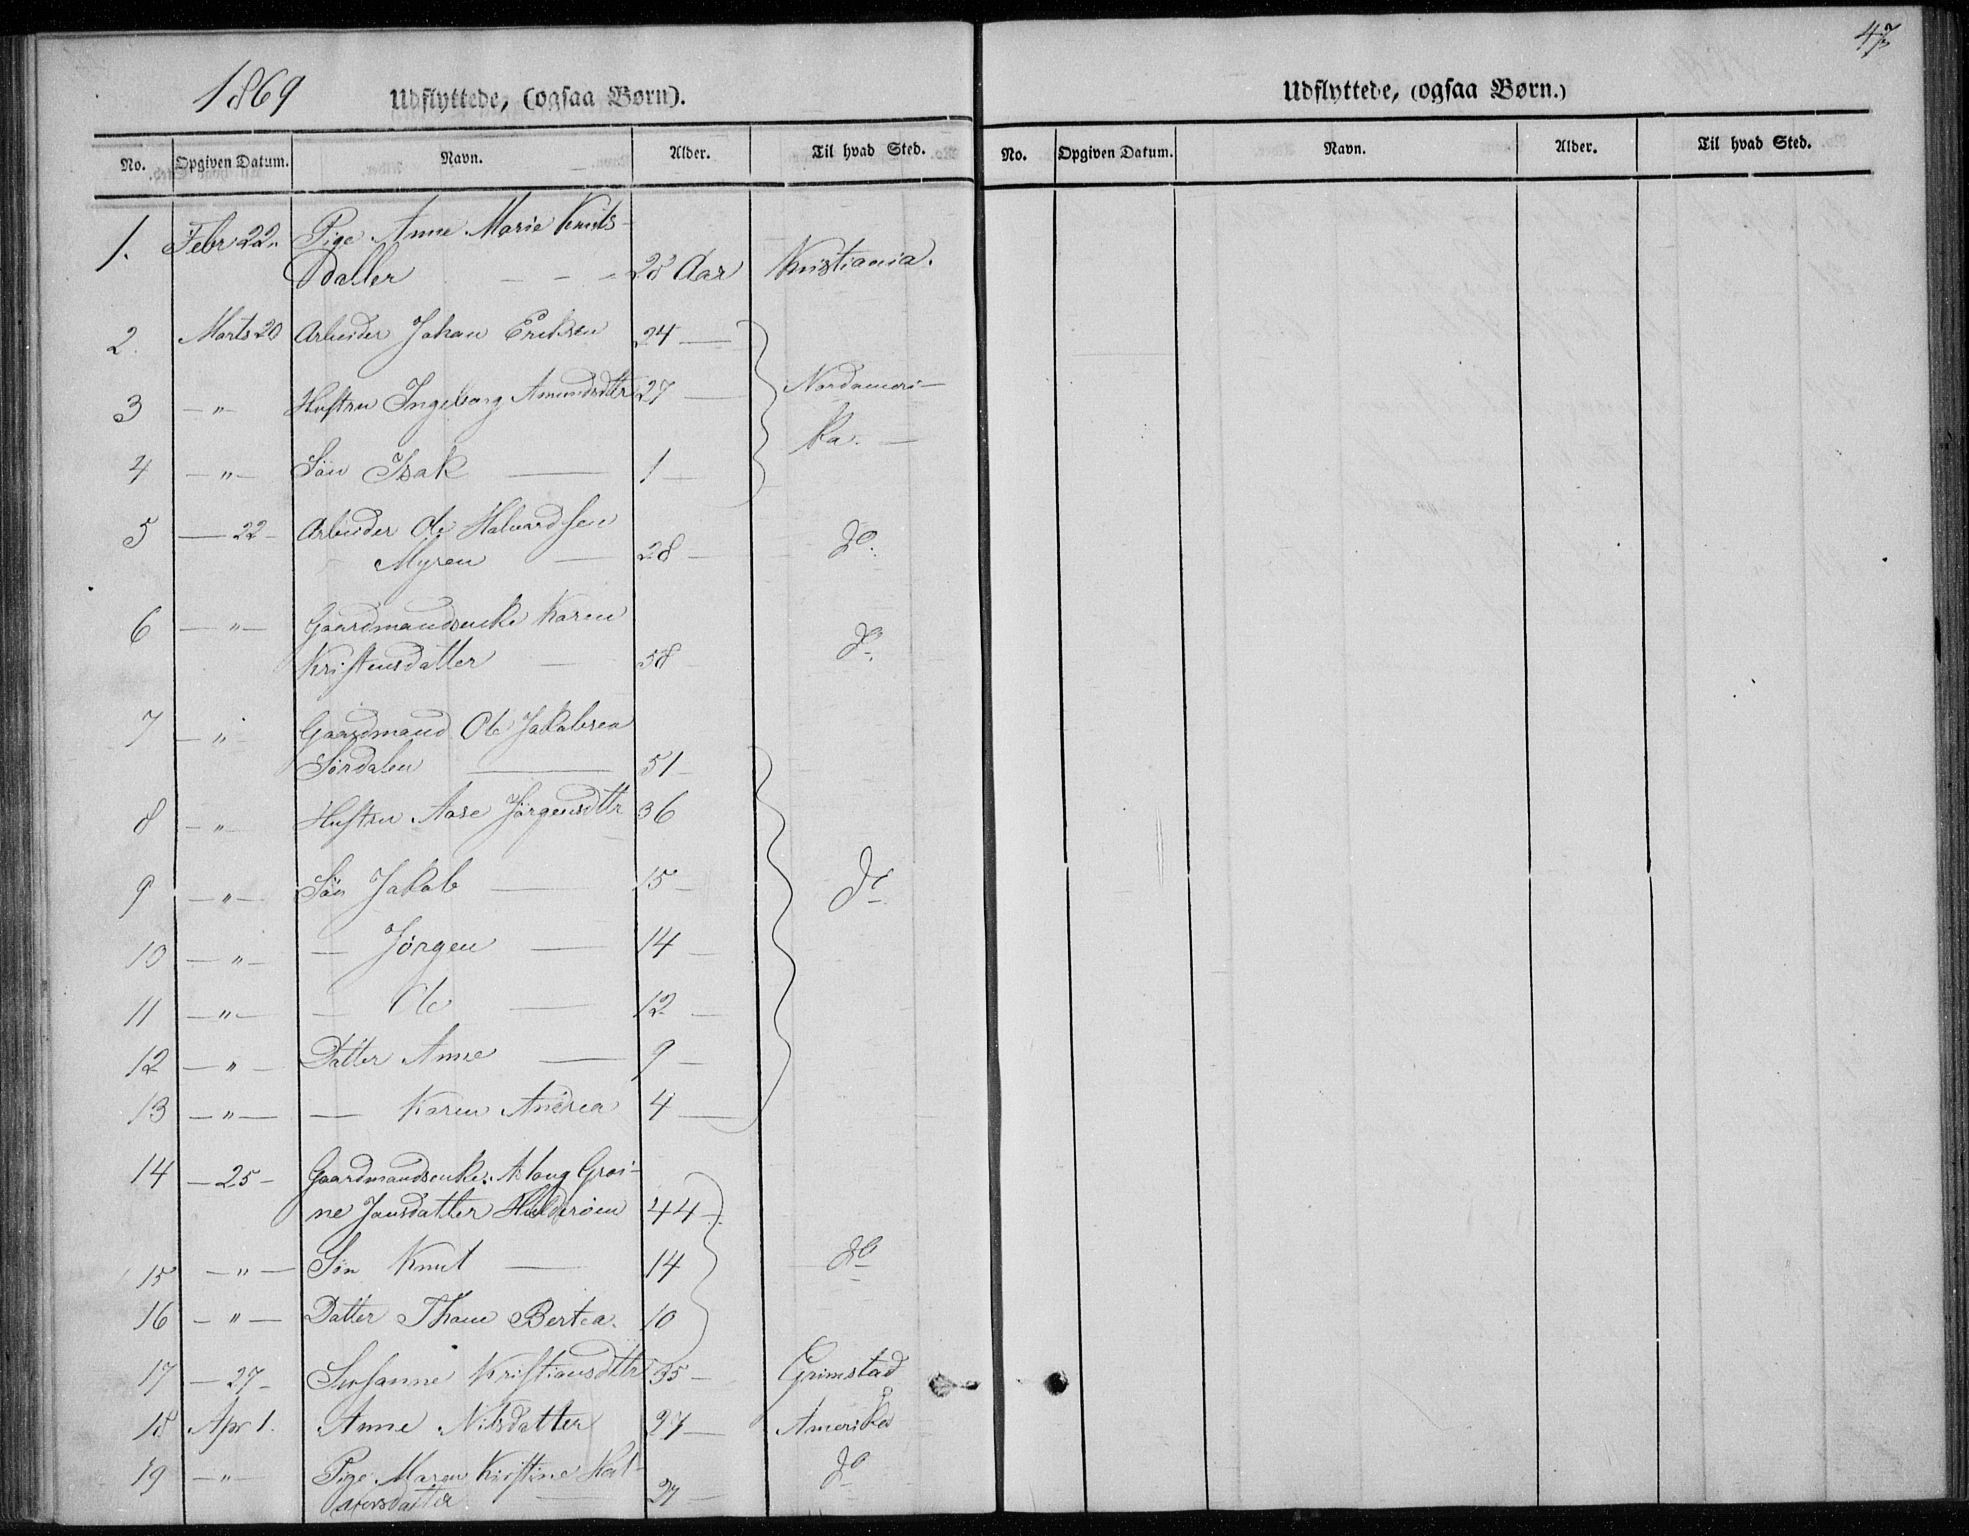 47
1869 Udflyttede, (ogsaa Børn).
No. Opgiven Datum. Navn. Alder. Til hvad Sted.
1. Febr 22. Pige Anne Marie Knuts-
datter 28 Aar Kristiania.
2. Marts 20 Arbeider Johan Eriksen 24 —
3 — " — Hustru Ingeborg Amundsdtr 27 — Nordameri-
ka. —
4 — " — Sön Isak — 1 —
5 — 22 — Arbeider Ole Halvardsen
Myren — 28 — do.
6 — " — Gaardmandsenke Karen
Kristensdatter — 58 do.
7 — " — Gaardmand Ole Jakobsen
Sørdalen — 51 —
8 — " — Hustru Aase Jörgensdtr 36
9 — " — Sön Jakob — 15 — do
10 — " — — Jörgen — 14 —
11 — " — — Ole — 12 —
12 — " — Datter Anne — 9 —
13 — " — — Karen Andrea 4 —
14 — 25 — Gaardmandsenke Aslaug
Jansdatter 44 —
15 — " — Sön Knut — 14 do
16 — " — Datter Bertea. 10
17 — 27 — Susanne Kristiansdttr 35 — Grimstad
18 Apr 1. Anne Nilsdatter 27 — Amerika
19 — " — Pige Maren Kirstine Hal-
vorsdatter — 27 — do
Udflyttede, (ogsaa Børn.)
No. Opgiven Datum. Navn. Alder. Til hvad Sted.